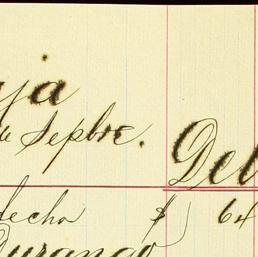 ja
de Sepbre. Deb
decho $ 64
Durango